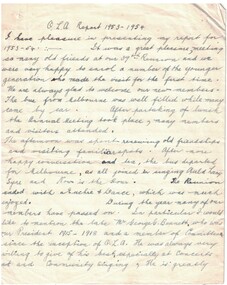 O.L.A. Report 1953-1954
I have pleasure in presenting my report for
1953-54:- It was a great pleasure meeting
so many old friends at our Reunion and we
were very happy to see a number of the younger
generation who made the visit for the first time.
We are always glad to welcome our new members.
The bus from Melbourne was well filled while many
came by car. After partaking of lunch,
the Annual Meeting took place, many members
and visitors attended.
The afternoon was spent renewing old friendships
and visiting familiar spots. After more
happy conversation and tea, the bus departed
for Melbourne, as all joined in singing Auld Lang
Syne and Now is the hour. The Reunion
ended with a Social & Dance, which was much
enjoyed. During the year many of our
members have passed on. In particular I would
like to mention the late Mr George Bennett, who was
our President 1915-1918 and a member of Committee
since the inception of O.L.A. He was always very
willing to give of his best, especially at Concerts
and Community Singing. He is greatly